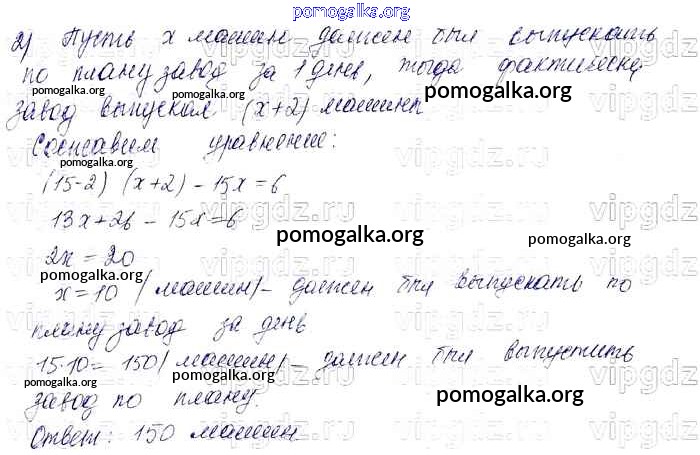 pomogalka.org
2) Пусть x машин должен был выпускать
по плану завод за 1 день, тогда фактически
pomogalka.org
завод выпускал (x+2) машины
pomogalka.org
Составим уравнение:
vipgdz
pomogalka.org
(15-2) (x+2) - 15x = 6
13x+26 - 15x = 6
pomogalka.org
pomogalka.org
2x = 20
x = 10 (машин) - должен был выпускать по
плану завод за день
pomogalka.org
15·10 = 150 (машин) - должен был выпустить
pomogalka.org
pomogalka.org
pomogalka.org
завод по плану.
Ответ: 150 машин
vipgdz